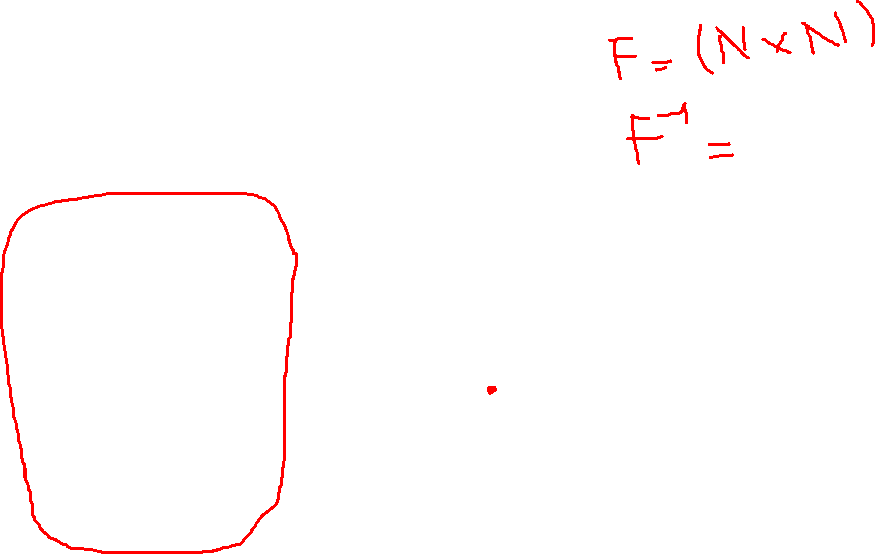 F = (N × N)
F⁻¹ =